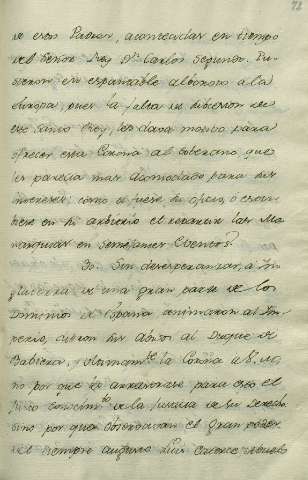 72
de esos Padres, acontecidas en tiempo
del Señor Rey Dn Carlos Segundo. Pu-
sieron en espantable alboroto a la
Europa, pues la falta de subcesion de
ese Santo Rey, les dava motivo para
ofrecer esta Corona al soberano que
les parecia mas acomodado para sus
intereses como si fuese su oficio, o estu-
biese en su arbitrio el repartir las Mo-
narquias en semejantes Eventos.
30. Sin desesperanzar, a In-
glaterra de una gran parte de los
Dominios de España animaron al Im-
perio, al Duque de
Babiera, la Corona a
no por que se para eso el
de la Justicia de su Derecho
sino por que el gran poder
del siempre augusto Luis Catorce